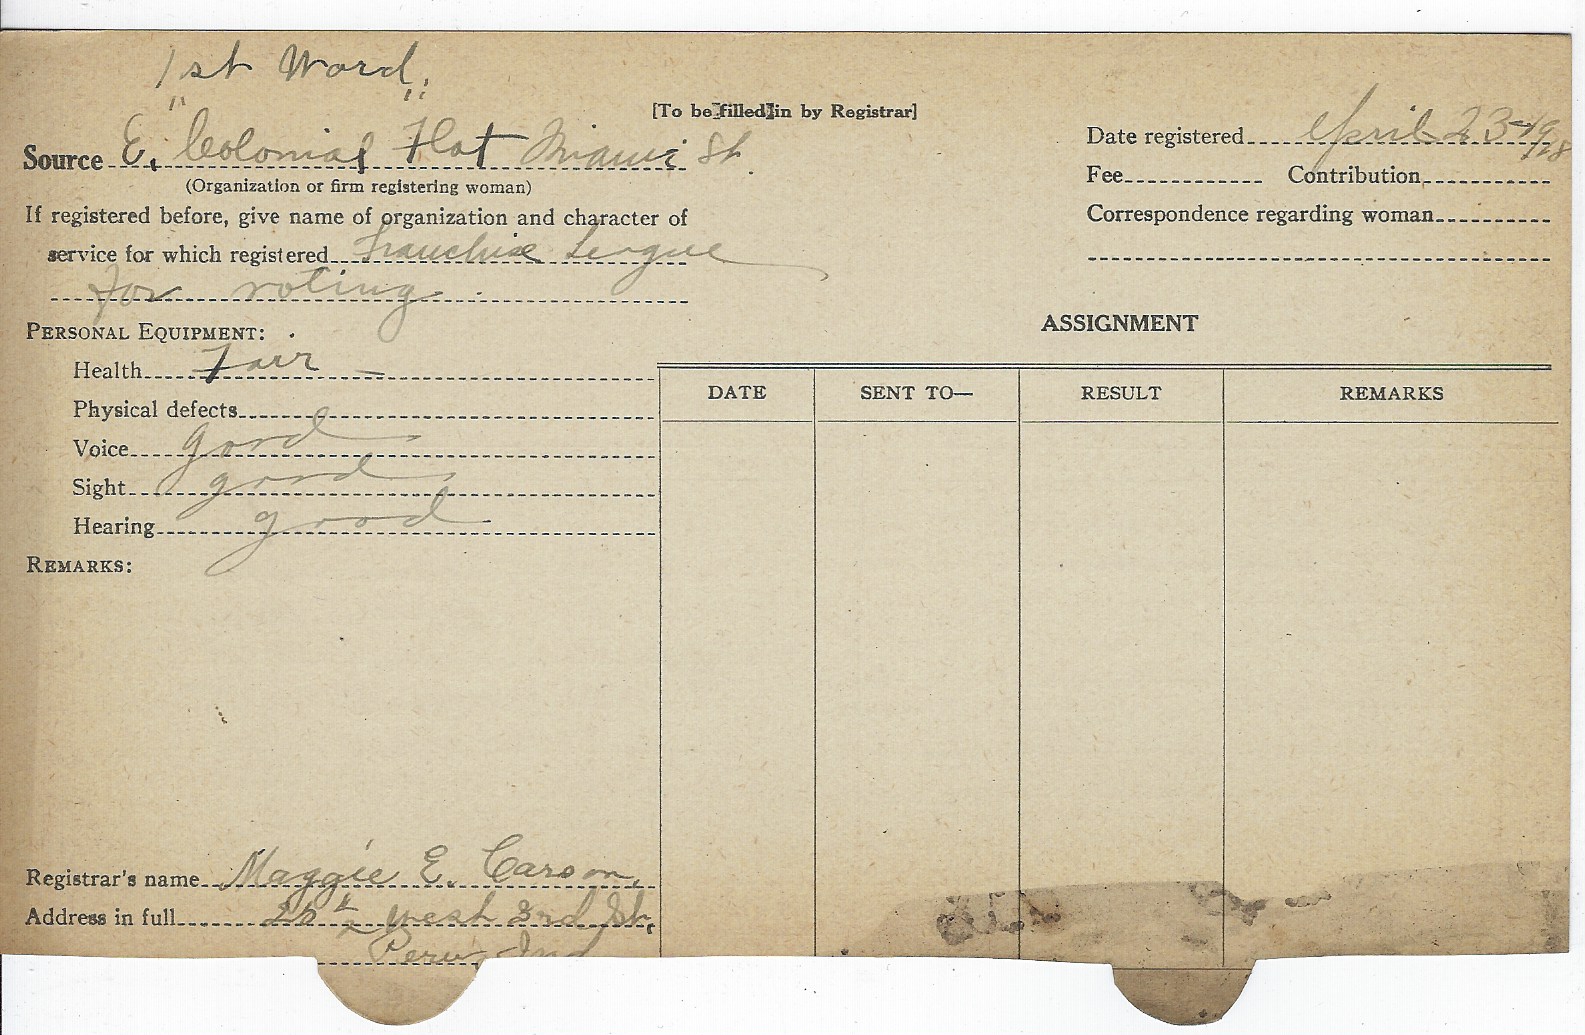 1st Ward.
" "
[To be filled in by Registrar]
Source E. Colonial Flat Miami St
(Organization or firm registering woman)
Date registered April 23-1918
Fee Contribution
Correspondence regarding woman
If registered before, give name of organization and character of
service for which registered Franchise League
for voting
PERSONAL EQUIPMENT:
Health Fair
Physical defects
Voice good
Sight good
Hearing good
REMARKS:
ASSIGNMENT
DATE SENT TO— RESULT REMARKS
Registrar's name Maggie E. Carson.
Address in full West 3rd St.
Peru, Ind